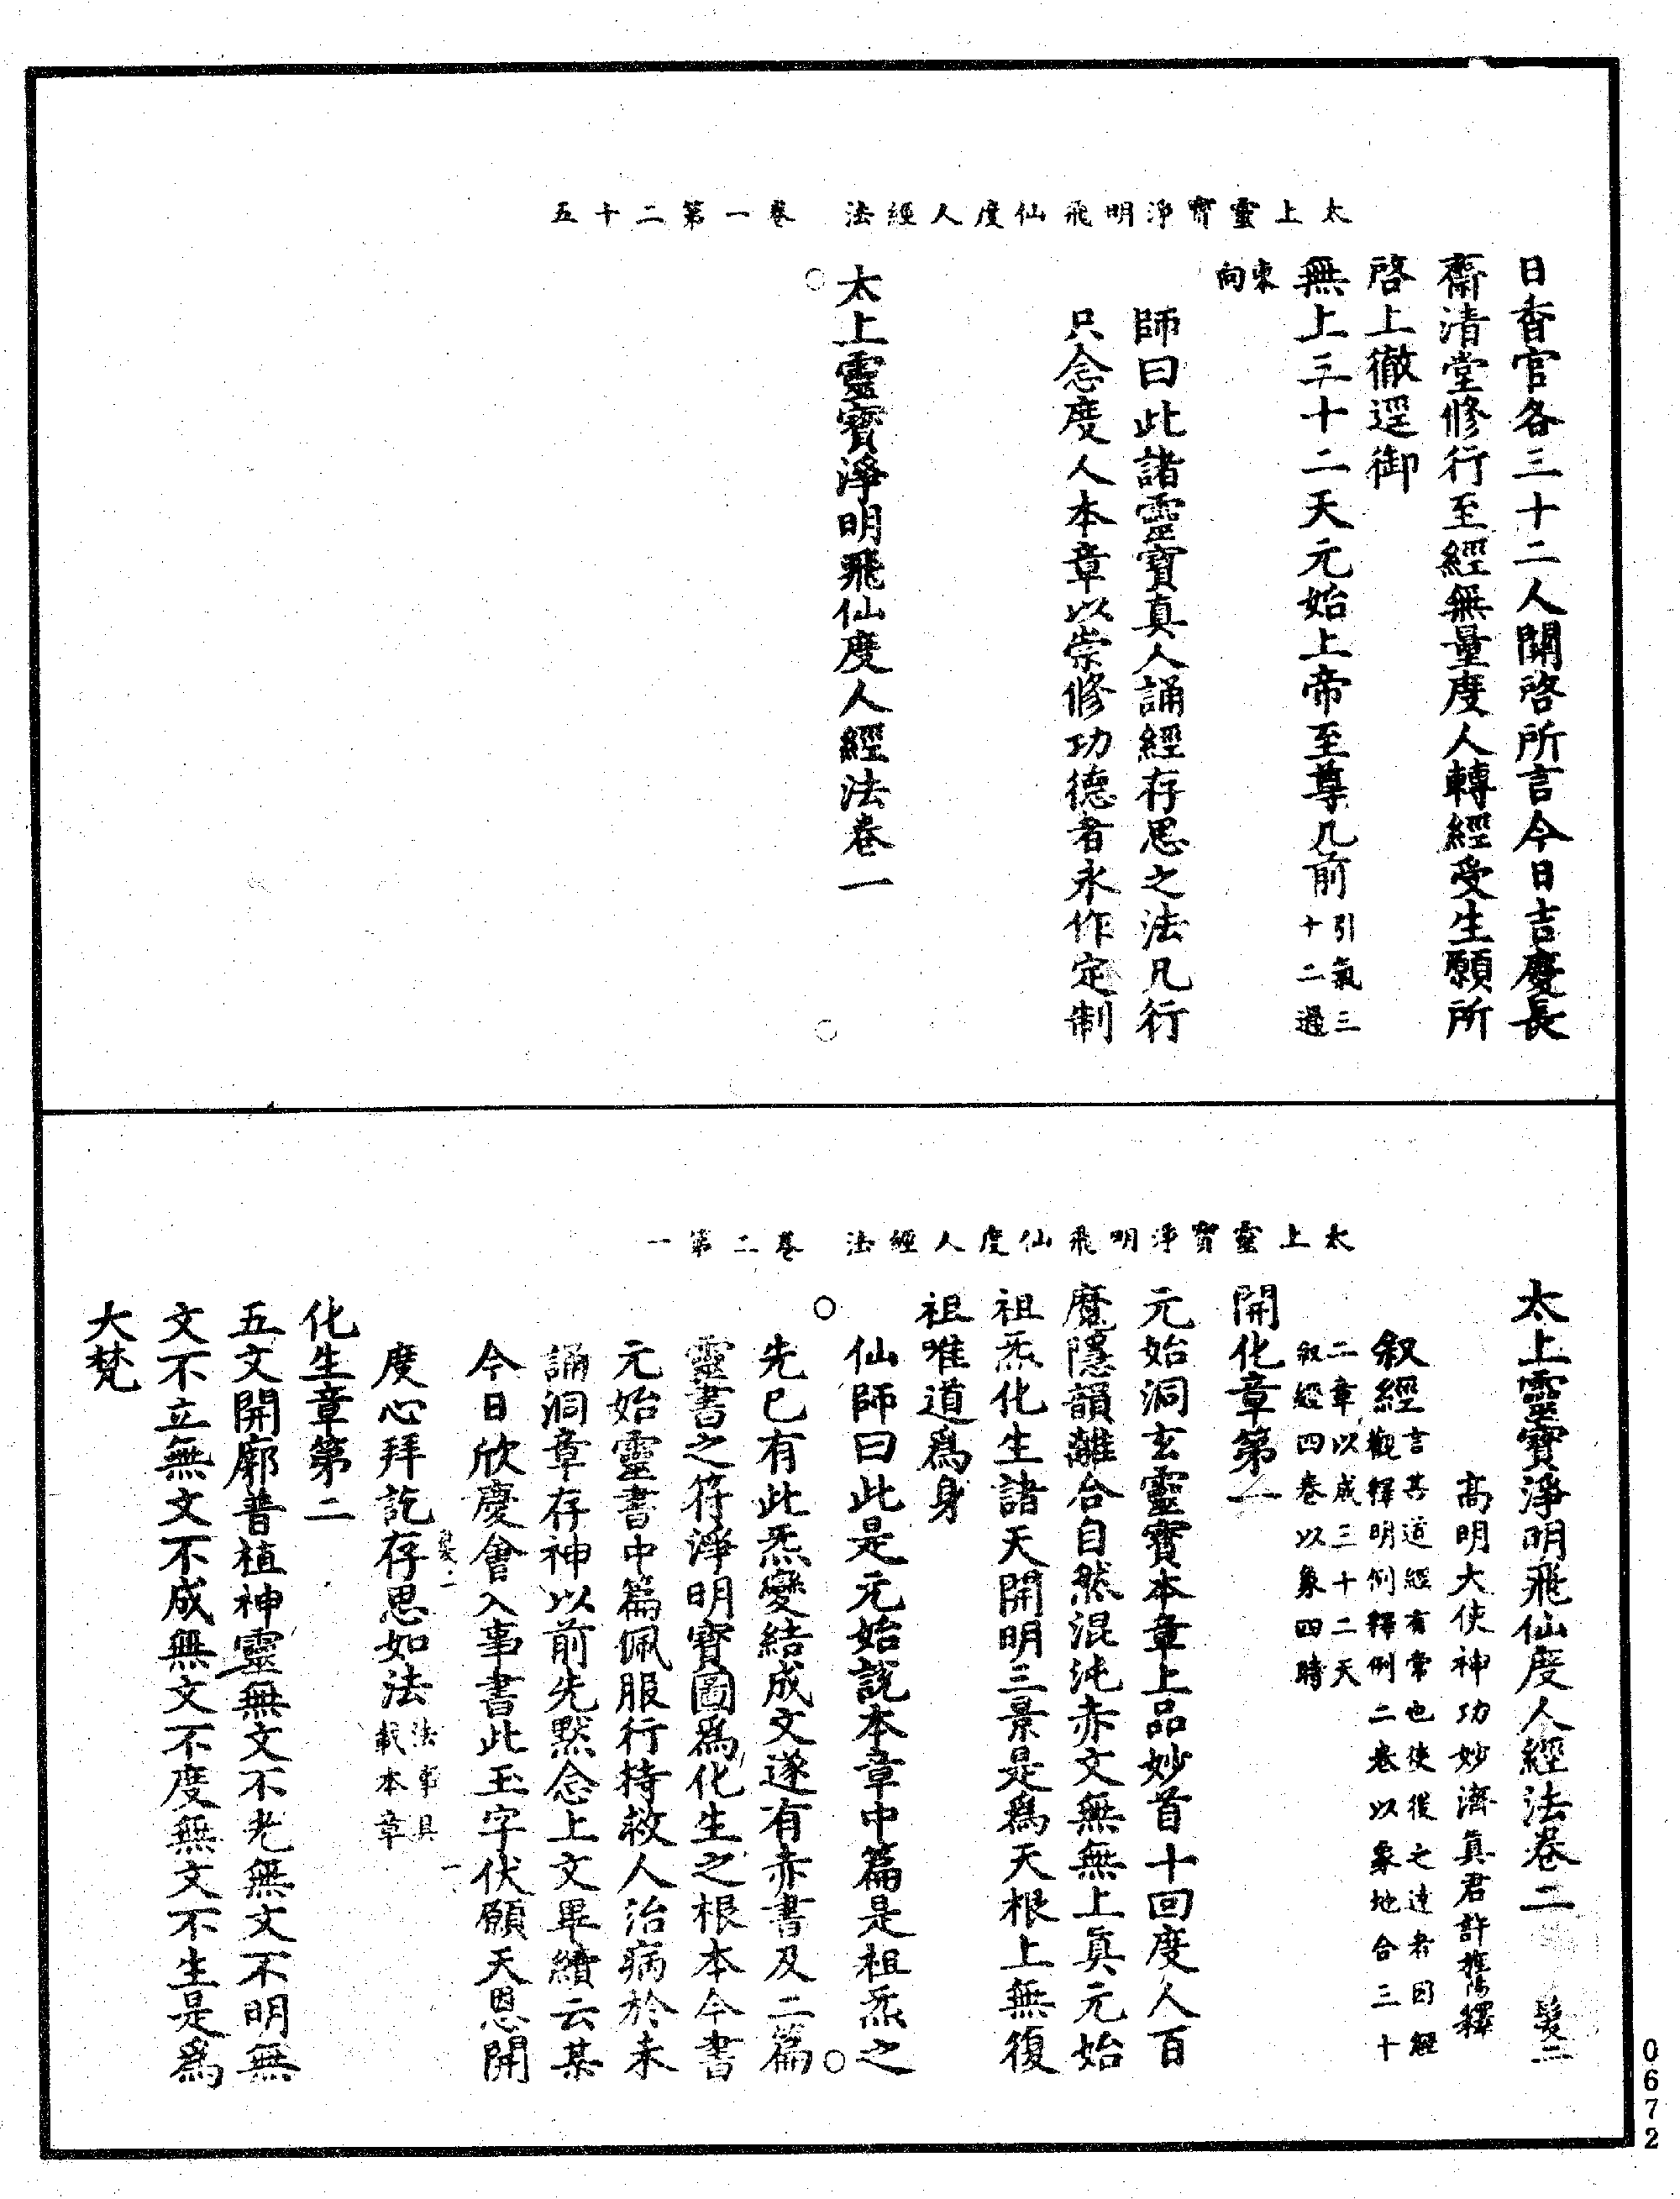 太上靈寶淨明飛仙度人經法　卷一第二十五
日香官各三十二人關啓所言今日吉慶長
齋清堂修行至經無量度人轉經受生願所
啓上徹逕御
無上三十二天元始上帝至尊几前引氣三十二過
東向
師曰此諸靈寶真人誦經存思之法凡行
只念度人本章以崇修功德者永作定制
太上靈寶淨明飛仙度人經法卷一
太上靈寶淨明飛仙度人經法　卷二第一
太上靈寶淨明飛仙度人經法卷二　髮二
高明大使神功妙濟真君許旌陽釋
叙經言其道經有常也使後之達者因經觀釋明例釋例二卷以象地合三十
二章以成三十二天叙經四卷以象四時
開化章第一
元始洞玄靈寶本章上品妙首十回度人百
魔隱韻離合自然混沌赤文無無上真元始
祖炁化生諸天開明三景是爲天根上無復
祖唯道爲身
仙師曰此是元始說本章中篇是祖炁之
先已有此炁變結成文遂有赤書及二篇
靈書之符淨明寶圖爲化生之根本今書
元始靈書中篇佩服行持救人治病於未
誦洞章存神以前先默念上文畢續云某
今日欣慶會入事書此玉字伏願天恩開
度心拜訖存思如法法事具載本章
化生章第二
五文開廓普植神靈無文不老無文不明無
文不立無文不成無文不度無文不生是爲
大梵
0672